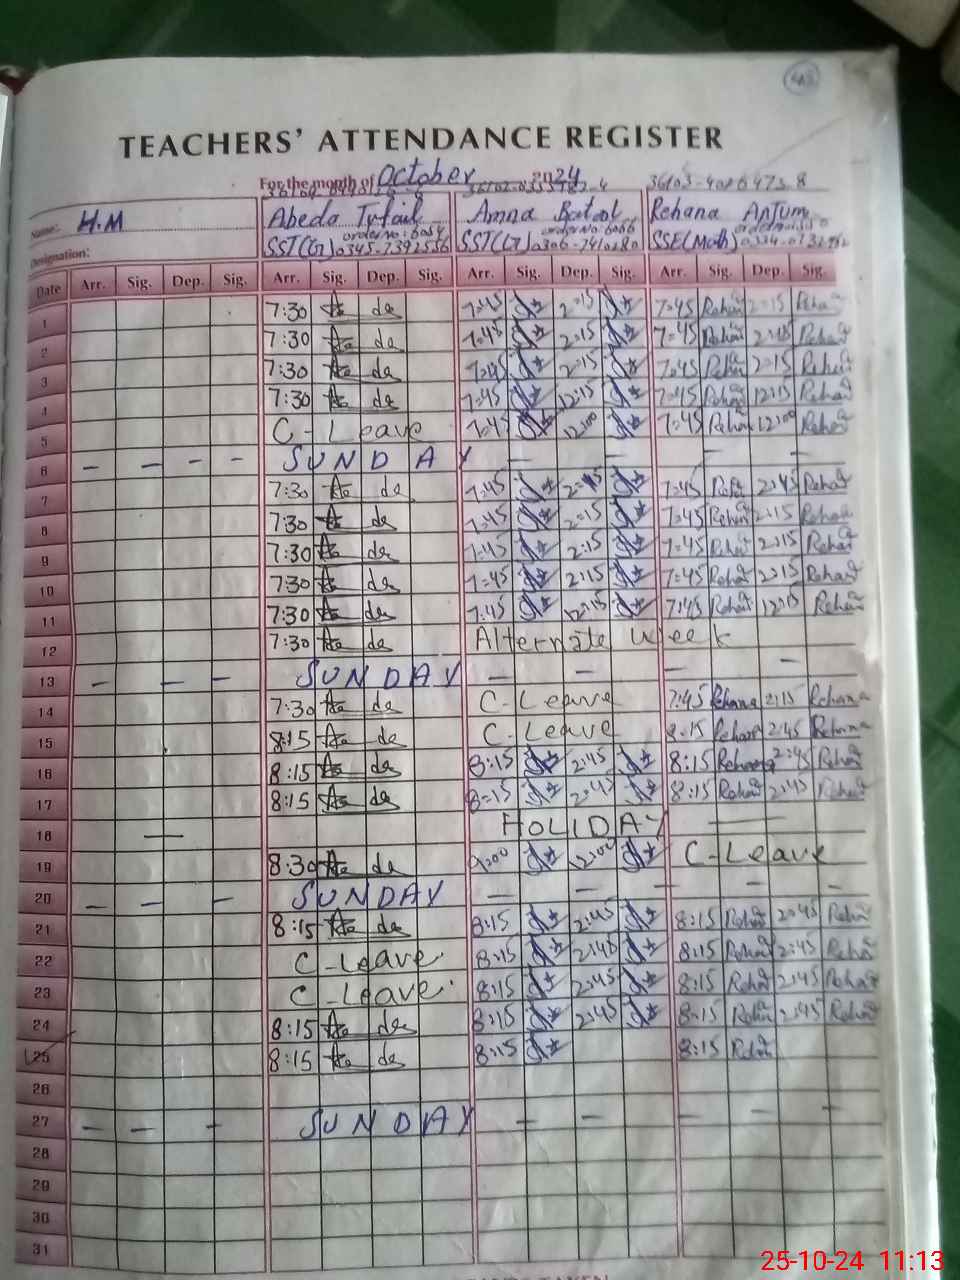 TEACHERS' ATTENDANCE REGISTER
For the month of October 2024
Name: H.M Abeda Tufail Amna Batool Rehana Anjum
Designation: SST(G) SST(G) SSE(Math)
Date Arr. Sig. Dep. Sig. Arr. Sig. Dep. Sig. Arr. Sig. Dep. Sig. Arr. Sig. Dep. Sig.
1 7:30 de 7:45 2:15 7:45 Rehana 2:15 Rehana
2 7:30 de 7:45 2:15 7:45 Rehana 2:15 Rehana
3 7:30 de 7:45 2:15 7:45 Rehana 2:15 Rehana
4 7:30 de 7:45 12:15 7:45 Rehana 12:15 Rehana
5 C-Leave 7:45 12:00 7:45 Rehana 12:00 Rehana
6 – – – – SUNDAY – – – –
7 7:30 de 7:45 7:45 Rehana 2:45 Rehana
8 7:30 de 7:45 2:15 7:45 Rehana 2:15 Rehana
9 7:30 de 7:45 2:15 7:45 Rehana 2:15 Rehana
10 7:30 de 7:45 2:15 7:45 Rehana 2:15 Rehana
11 7:30 de 7:45 12:15 7:45 Rehana 12:15 Rehana
12 7:30 de Alternate week
13 – – – SUNDAY – – – –
14 7:30 de C-Leave 7:45 Rehana 2:15 Rehana
15 8:15 de C-Leave 8:15 Rehana 2:45 Rehana
16 8:15 de 8:15 2:45 8:15 Rehana 2:45 Rehana
17 8:15 de 8:15 2:45 8:15 Rehana 2:45 Rehana
18 — HOLIDAY —
19 8:30 de 9:00 12:00 C-Leave
20 – – – SUNDAY – – – – –
21 8:15 de 8:15 2:45 8:15 Rehana 2:45 Rehana
22 C-Leave 8:15 2:45 8:15 Rehana 2:45 Rehana
23 C-Leave 8:15 2:45 8:15 Rehana 2:45 Rehana
24 8:15 de 8:15 2:45 8:15 Rehana 2:45 Rehana
25 8:15 de 8:15 8:15 Rehana
26
27 – – – SUNDAY – – – – –
28
29
30
31
25-10-24 11:13